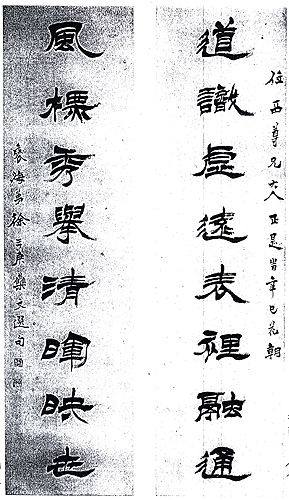 位西尊兄大人正是旹辛巳花朝
道識虛遠表裡融通
風標秀舉清暉映世
褎海弟徐三庚文選句